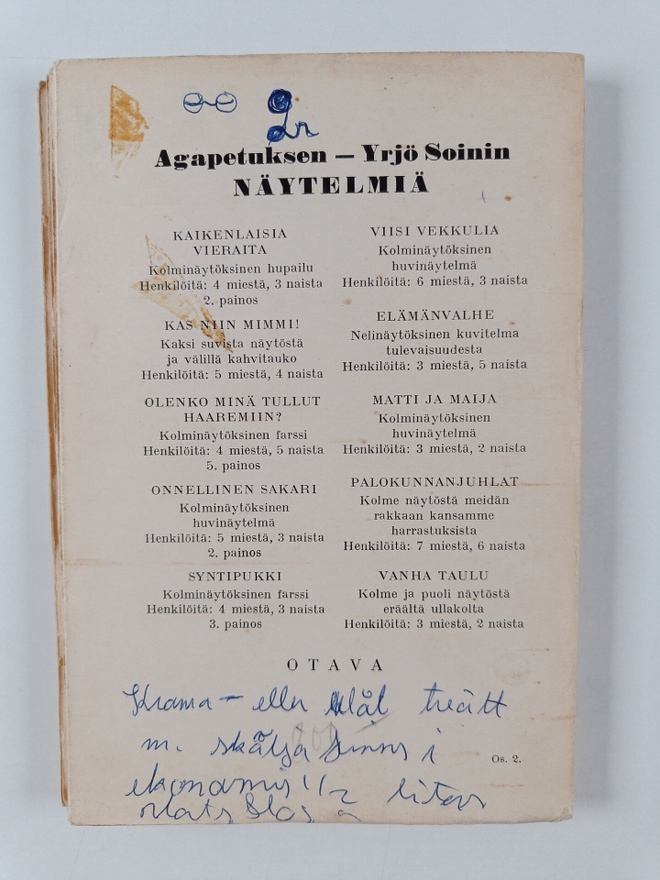 Agapetuksen — Yrjö Soinin
NÄYTELMIÄ
KAIKENLAISIA
VIERAITA
Kolminäytöksinen hupailu
Henkilöitä: 4 miestä, 3 naista
2. painos
KAS NIIN MIMMI!
Kaksi suvista näytöstä
ja välillä kahvitauko
Henkilöitä: 5 miestä, 4 naista
OLENKO MINÄ TULLUT
HAAREMIIN?
Kolminäytöksinen farssi
Henkilöitä: 4 miestä, 5 naista
5. painos
ONNELLINEN SAKARI
Kolminäytöksinen
huvinäytelmä
Henkilöitä: 5 miestä, 3 naista
2. painos
SYNTIPUKKI
Kolminäytöksinen farssi
Henkilöitä: 4 miestä, 3 naista
3. painos
VIISI VEKKULIA
Kolminäytöksinen
huvinäytelmä
Henkilöitä: 6 miestä, 3 naista
ELÄMÄNVALHE
Nelinäytöksinen kuvitelma
tulevaisuudesta
Henkilöitä: 3 miestä, 5 naista
MATTI JA MAIJA
Kolminäytöksinen
huvinäytelmä
Henkilöitä: 3 miestä, 2 naista
PALOKUNNANJUHLAT
Kolme näytöstä meidän
rakkaan kansamme
harrastuksista
Henkilöitä: 7 miestä, 6 naista
VANHA TAULU
Kolme ja puoli näytöstä
eräältä ullakolta
Henkilöitä: 3 miestä, 2 naista
OTAVA
– eller
m. i
Os. 2.
1/2